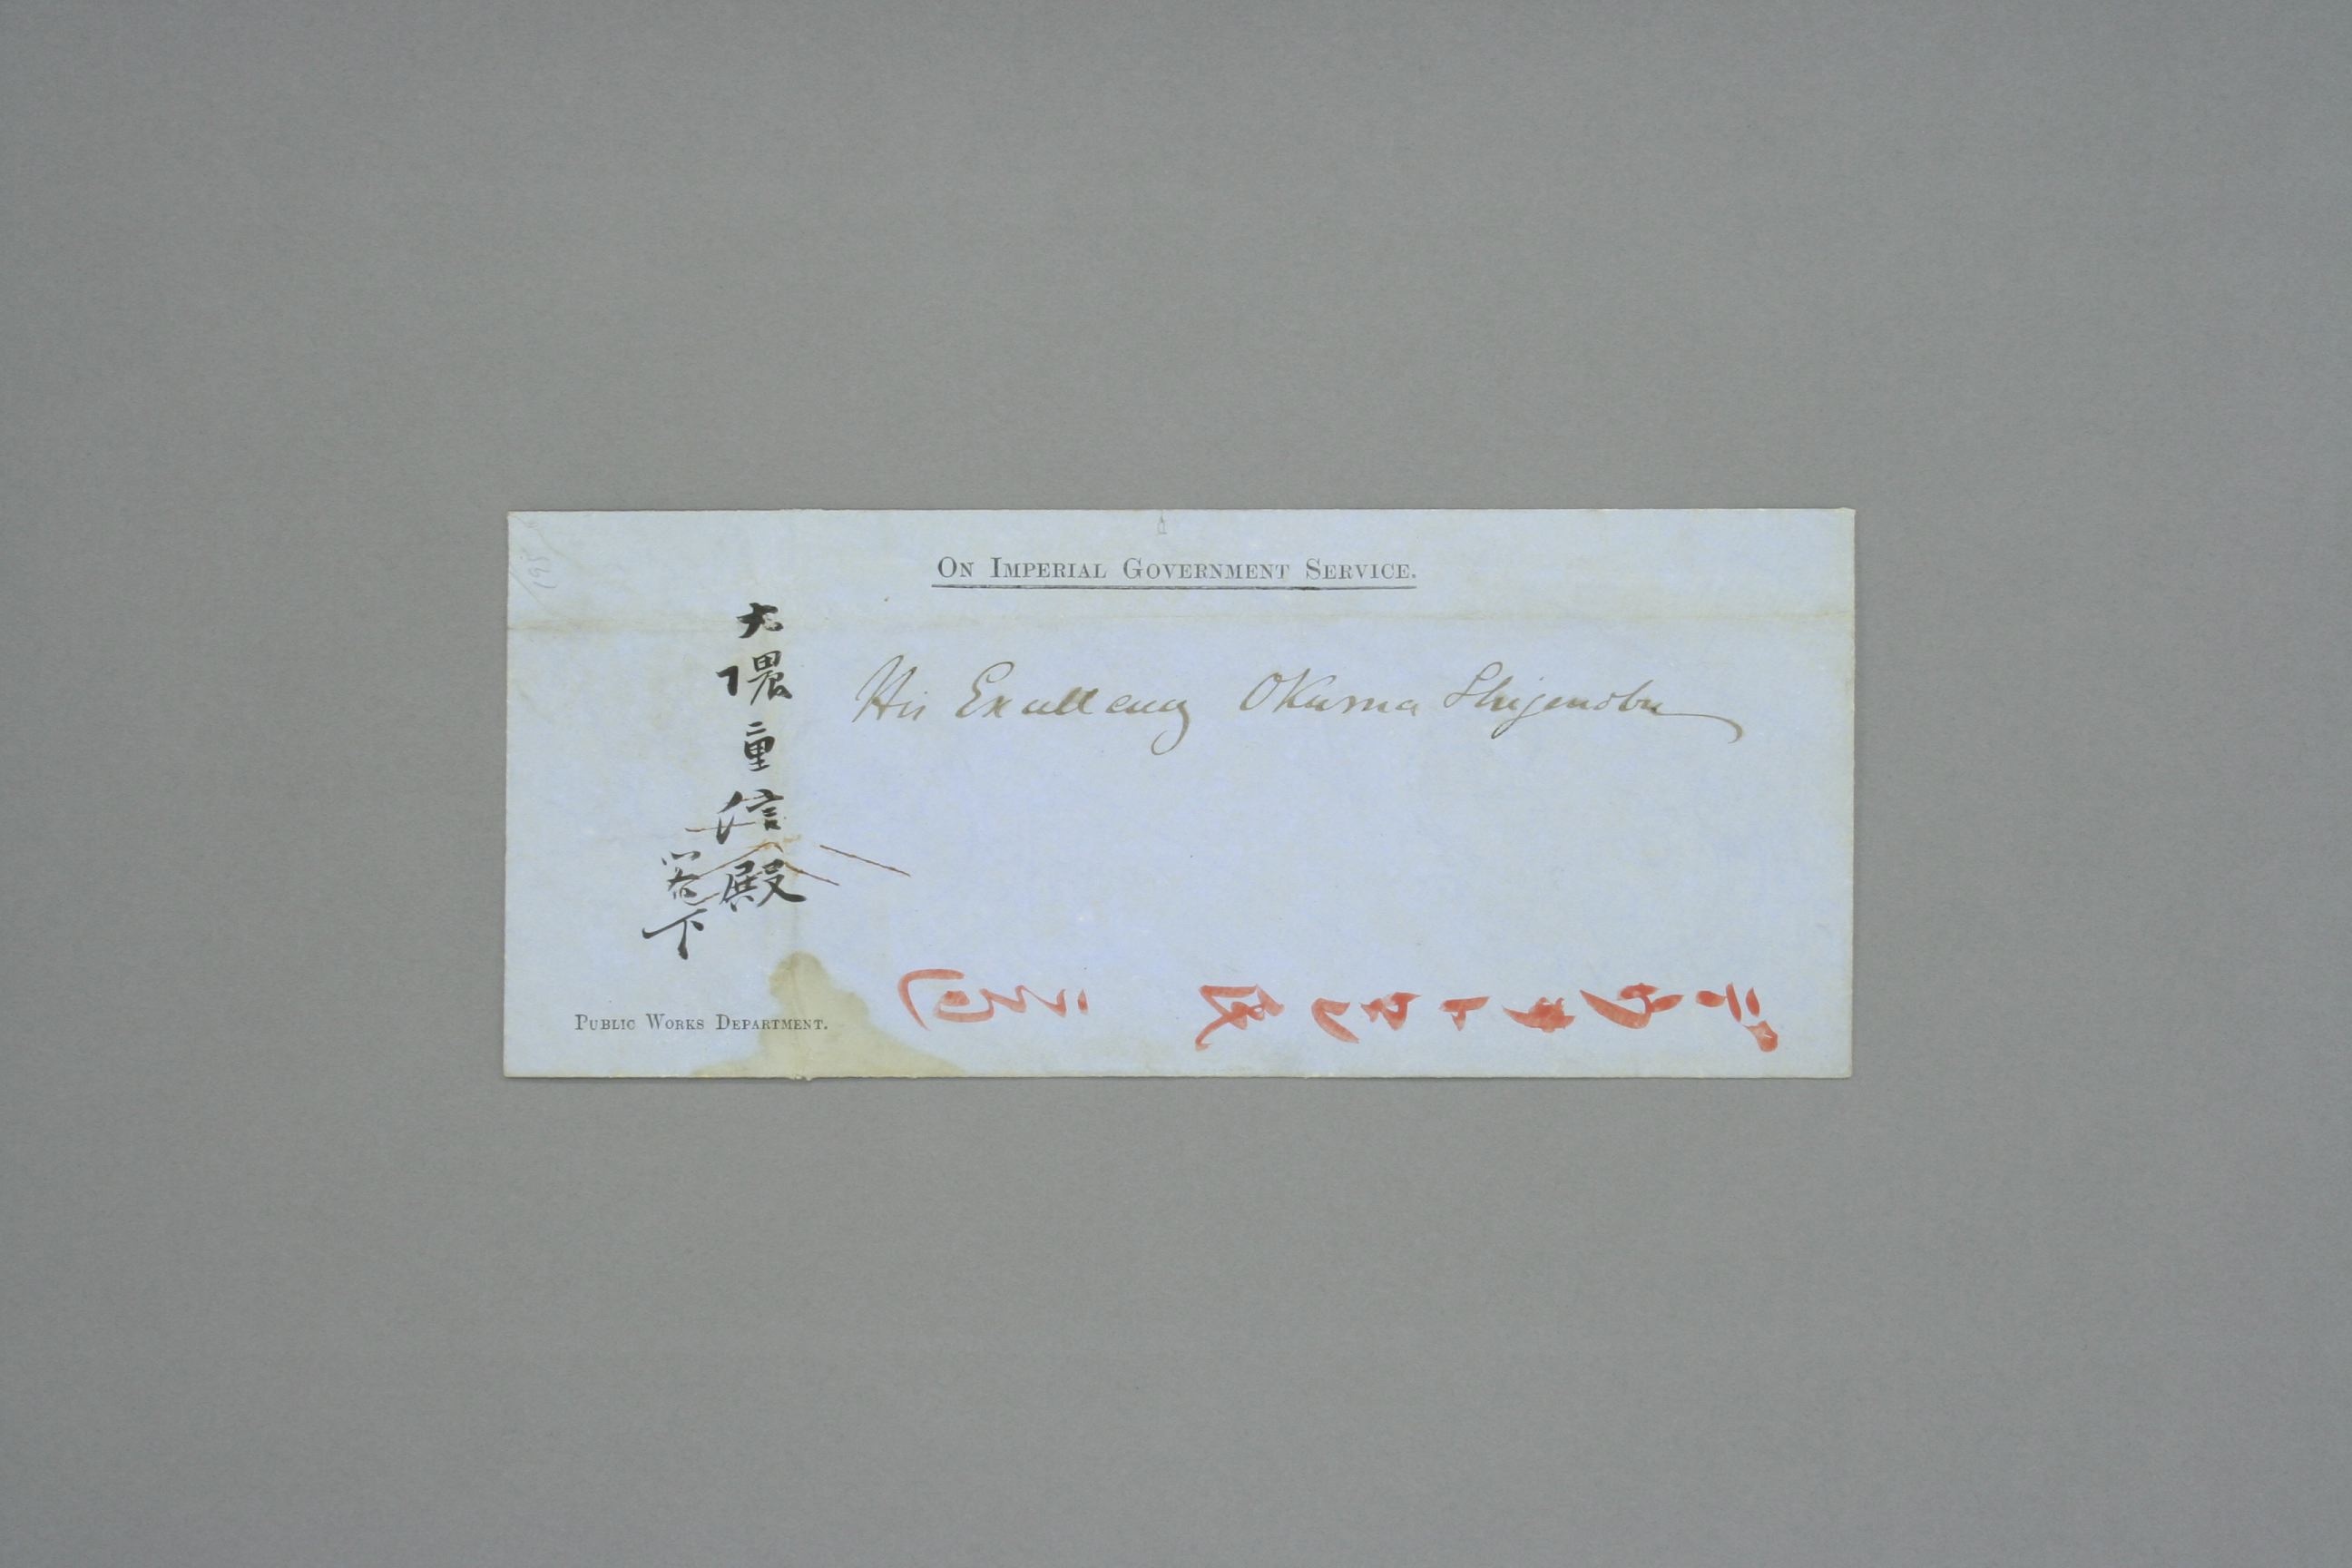 ON IMPERIAL GOVERNMENT SERVICE.
His Excellency Okuma Shigenobu
大隈重信殿
閣下
PUBLIC WORKS DEPARTMENT.